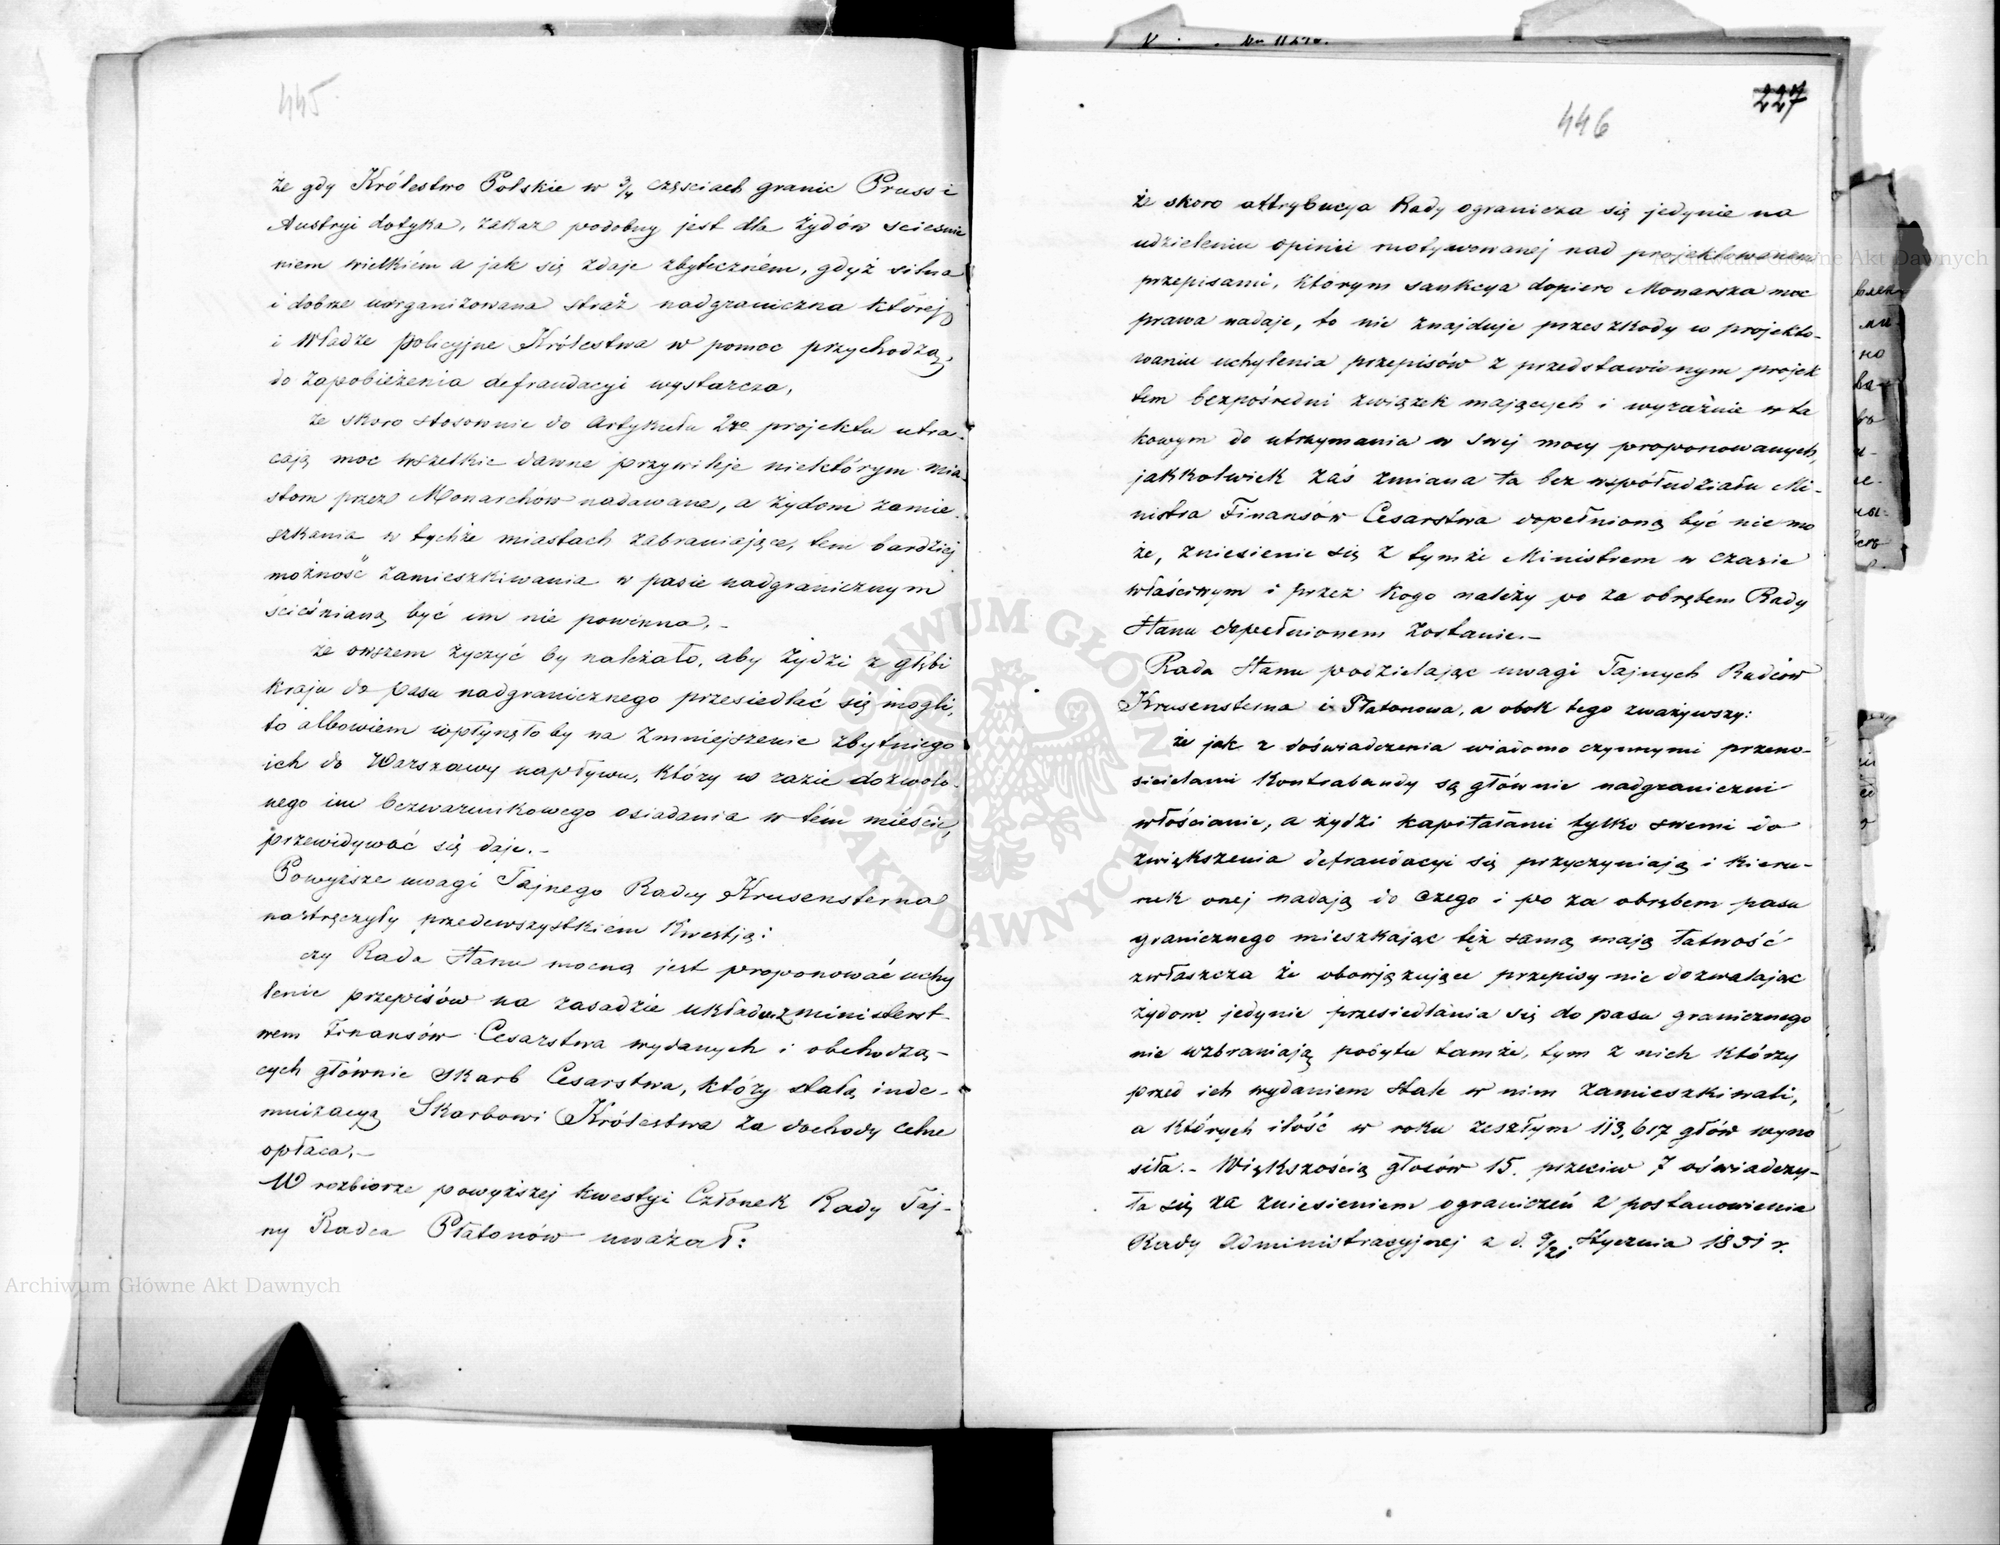 445
że gdy Królestwo Polskie w 3/4 częściach granic Pruss i
Austryi dotyka, zakaz podobny jest dla żydów ścieśnie
niem wielkiém a jak się zdaje zbyteczném, gdyż silna
i dobrze uorganizowana straż nadgraniczna której
i Władze policyjne Królestwa w pomoc przychodzą,
do zapobieżenia defraudacyi wystarcza,
że skoro stosownie do Artykułu 2go projektu utra-
cają moc wszelkie dawne przywileje niektórym mia-
stom przez Monarchów nadawane, a żydom zamie-
szkania w tychże miastach zabraniające, tem bardziej
możność zamieszkiwania w pasie nadgranicznym
ścieśnianą być im nie powinna.-
że owszem życzyć by należało, aby żydzi z głębi
kraju do pasu nadgranicznego przesiedlać się mogli,
to albowiem wpłynęłoby na zmniejszenie zbytniego
ich do Warszawy napływu, który w razie dozwolo-
nego im bezwarunkowego osiadania w tém mieście,
przewidywać się daje.-
Powyższe uwagi Tajnego Radcy Krusensterna
nastręczyły przedewszystkiém kwestją:
czy Rada Stanu mocną jest proponować uchy
lenie przepisów na zasadzie układu z ministerst-
wem Finansów Cesarstwa wydanych i obchodzą-
cych głównie skarb Cesarstwa, który stałą inde-
mnizacyą Skarbowi Królestwa za dochody celne
opłaca.-
W rozbiorze powyższej kwestyi Członek Rady Taj-
ny Radca Płatonów uważał:
227
446
że skoro attrybucya Rady ogranicza się jedynie na
udzieleniu opinii motywowanej nad projektowanemi
przepisami, którym sankcya dopiero Monarsza moc
prawa nadaje, to nie znajduje przeszkody w projekto-
waniu uchylenia przepisów z przedstawionym projek
tem bezpośredni związek mających i wyraźnie w ta
kowym do utrzymania w swej mocy proponowanych,
jakkolwiek zaś zmiana ta bez współudziału Mi-
nistra Finansów Cesarstwa dopełnioną być nie mo
że, zniesienie się z tymże Ministrem w czasie
właściwym i przez kogo należy po za obrębem Rady
Stanu dopełnionem zostanie.-
Rada Stanu podzielając uwagi Tajnych Radców
Krusensterna i Płatonowa, a obok tego zważywszy:
że jak z doświadczenia wiadomo czynnymi przeno-
sicielami kontrabandy są głównie nadgraniczni
włościanie, a żydzi kapitałami tylko swemi do
zwiększenia defraudacyi się przyczyniają i kieru-
nek onej nadają do czego i po za obrębem pasu
granicznego mieszkając téż samą mają łatwość
zwłaszcza że obowjązujące przepisy nie dozwalając
żydom jedynie przesiedlania się do pasu granicznego
nie wzbraniają pobytu tamże, tym z nich którzy
przed ich wydaniem stale w nim zamieszkiwali,
a których ilość w roku zeszłym 113,617 głów wyno
siła.- Większością głosów 15. przeciw 7 oświadczy-
ła się za zniesieniem ograniczeń z postanowienia
Rady Administracyjnej z d. 9/21 Stycznia 1851 r.
Archiwum Główne Akt Dawnych
Archiwum Główne Akt Dawnych
ARCHIWUM GŁÓWNE AKT DAWNYCH